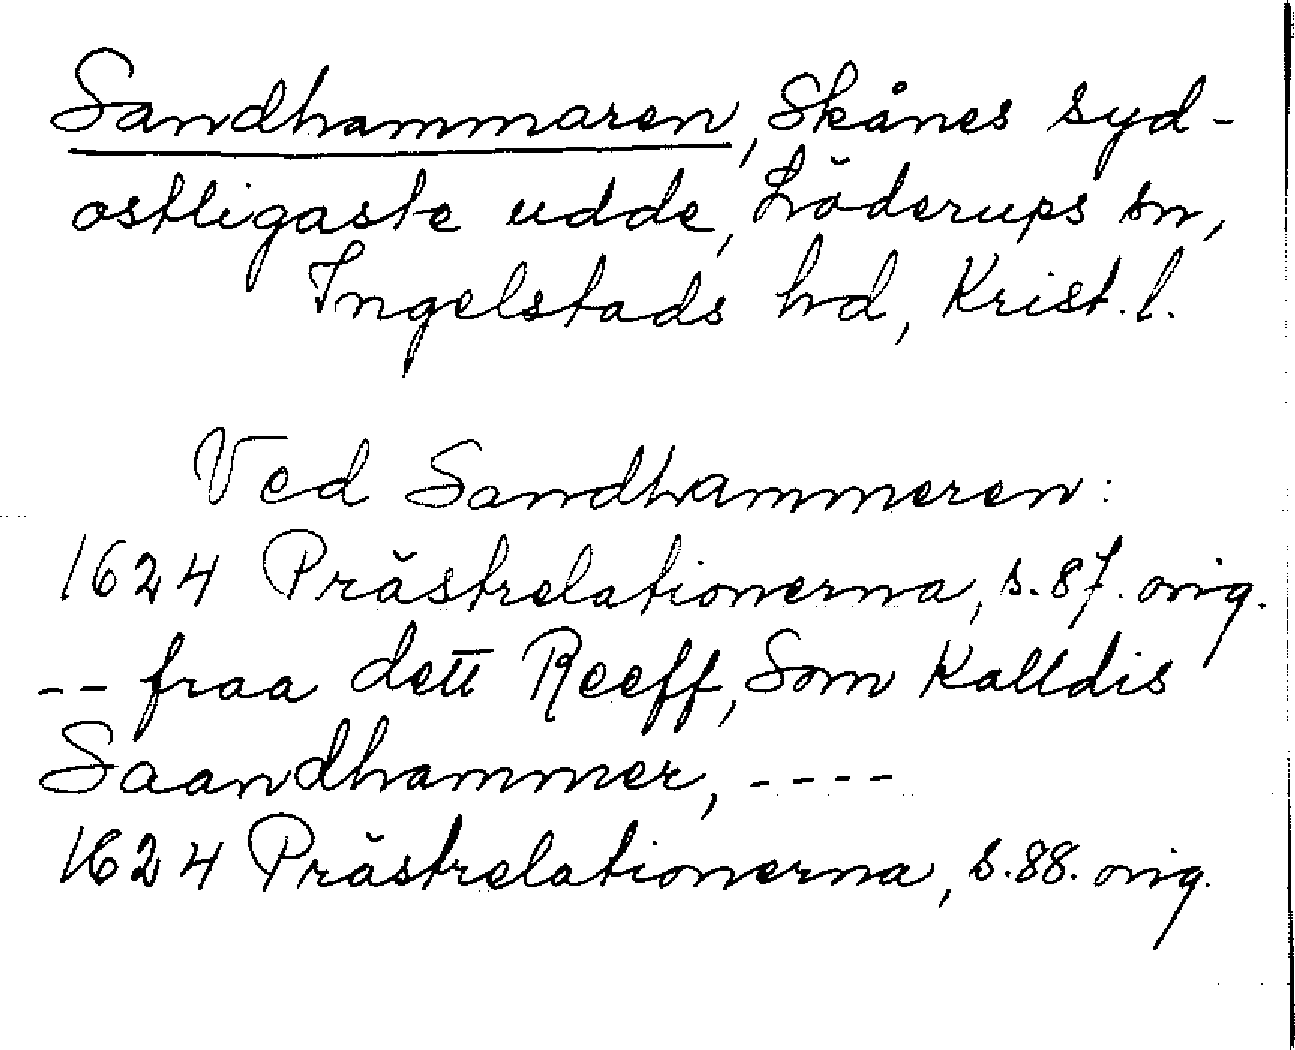 Sandhammaren, Skånes syd-
ostligaste udde, Löderups sn,
Ingelstads hd, Krist. l.
Ved Sandhammeren:
1624 Prästrelationerna, s. 87. orig.
-- fraa dett Reeff, Som Kalldis
Saandhammer, ----
1624 Prästrelationerna, s. 88. orig.